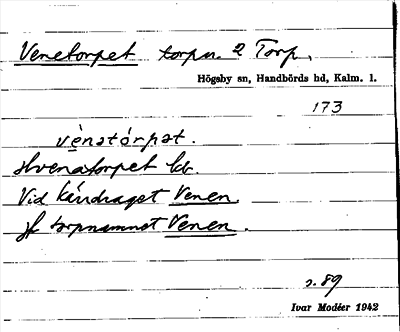 Venetorpet torpn. 2 Torp.
Högsby sn, Handbörds hd, Kalm. l.
173
vènatórpat.
Hvenatorpet kb.
Vid kärrdraget Venen.
jf torpnamnet Venen.
s. 89
Ivar Modéer 1942